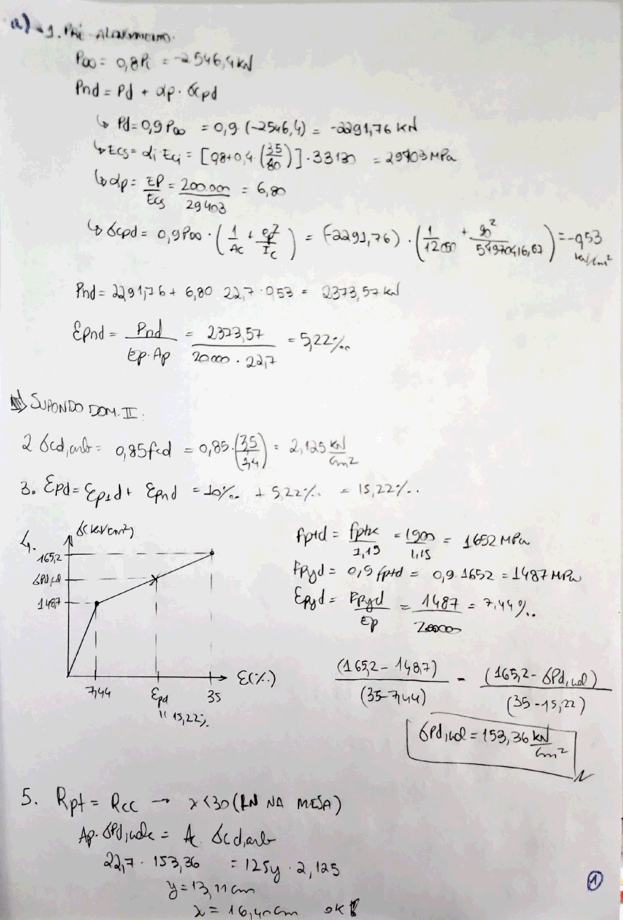 a) 1. Pré-Alongamento
P∞ = 0,8Pi = -2546,4 kN
Pnd = Pd + αp · σcpd
↳ Pd = 0,9 P∞ = 0,9 · (-2546,4) = -2291,76 kN
↳ Ecs = αi Eci = [0,8+0,4 (35/80)] · 33130 = 29403 MPa
↳ αp = EP/Ecs = 200.000/29403 = 6,80
↳ σcpd = 0,9P∞ · (1/Ac + ep²/Ic) = (-2291,76) · (1/12000 + 90²/54970416,67) = -0,53 kN/cm²
Pnd = 2291,76 + 6,80 · 22,7 · 0,53 = 2373,57 kN
Epnd = Pnd/Ep·Ap = 2373,57/20000 · 22,7 = 5,22‰
SUPONDO DOM. II:
2 σcd,arb = 0,85fcd = 0,85 · (3,5/1,4) = 2,125 kN/cm²
3. Epd = Ep1d + Epnd = 10‰ + 5,22‰ = 15,22‰
4. σ(kN/cm²)
165,2
σpd,cal
148,7
7,44 Epd 35 E(‰)
15,22‰
fptd = fptk/1,15 = 1900/1,15 = 1652 MPa
Fpyd = 0,9 fptd = 0,9 · 1652 = 1487 MPa
Epyd = Fpyd/Ep = 1487/200000 = 7,44‰
(165,2 - 148,7)/(35-7,44) = (165,2 - σPd,cal)/(35 - 15,22)
σPd,cal = 153,36 kN/cm²
5. Rpt = Rcc → x<30 (LN NA MESA)
Ap · σPd,calc = Ac · σcd,arb
22,7 · 153,36 = 125y · 2,125
y = 13,11 cm
x = 16,40 cm ok!
1